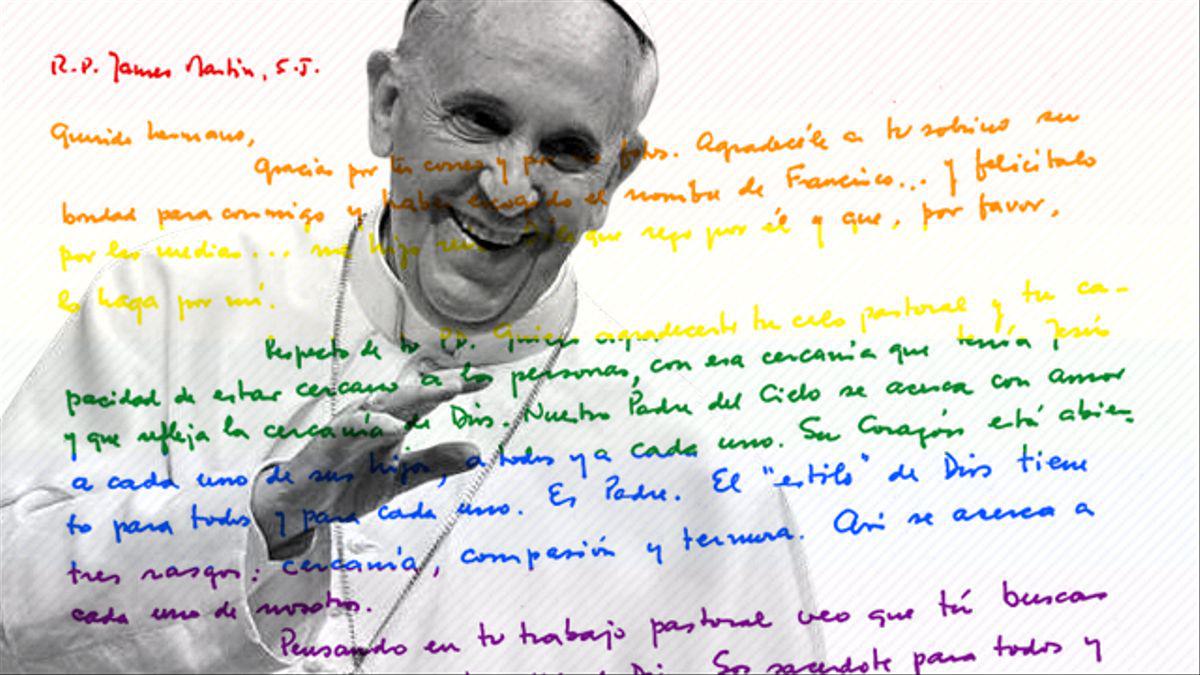 R.P. James Martin, S.J.
Querido hermano,
Gracias por tu correo y por las fotos. Agradécele a tu sobrino su
bondad para conmigo y haber escogido el nombre de Francisco... y felicítalo
por las medias... me hizo reír. Dile que rezo por él y que, por favor,
lo haga por mí.
Respecto de tu PD. Quiero agradecerte tu celo pastoral y tu ca-
pacidad de estar cercano a las personas, con esa cercanía que tenía Jesús
y que refleja la cercanía de Dios. Nuestro Padre del Cielo se acerca con amor
a cada uno de sus hijos, a todos y a cada uno. Su Corazón está abier-
to para todos y para cada uno. Es Padre. El "estilo" de Dios tiene
tres rasgos: cercanía, compasión y ternura. Así se acerca a
cada uno de nosotros.
Pensando en tu trabajo pastoral veo que tú buscas
Dios. Sos sacerdote para todos y